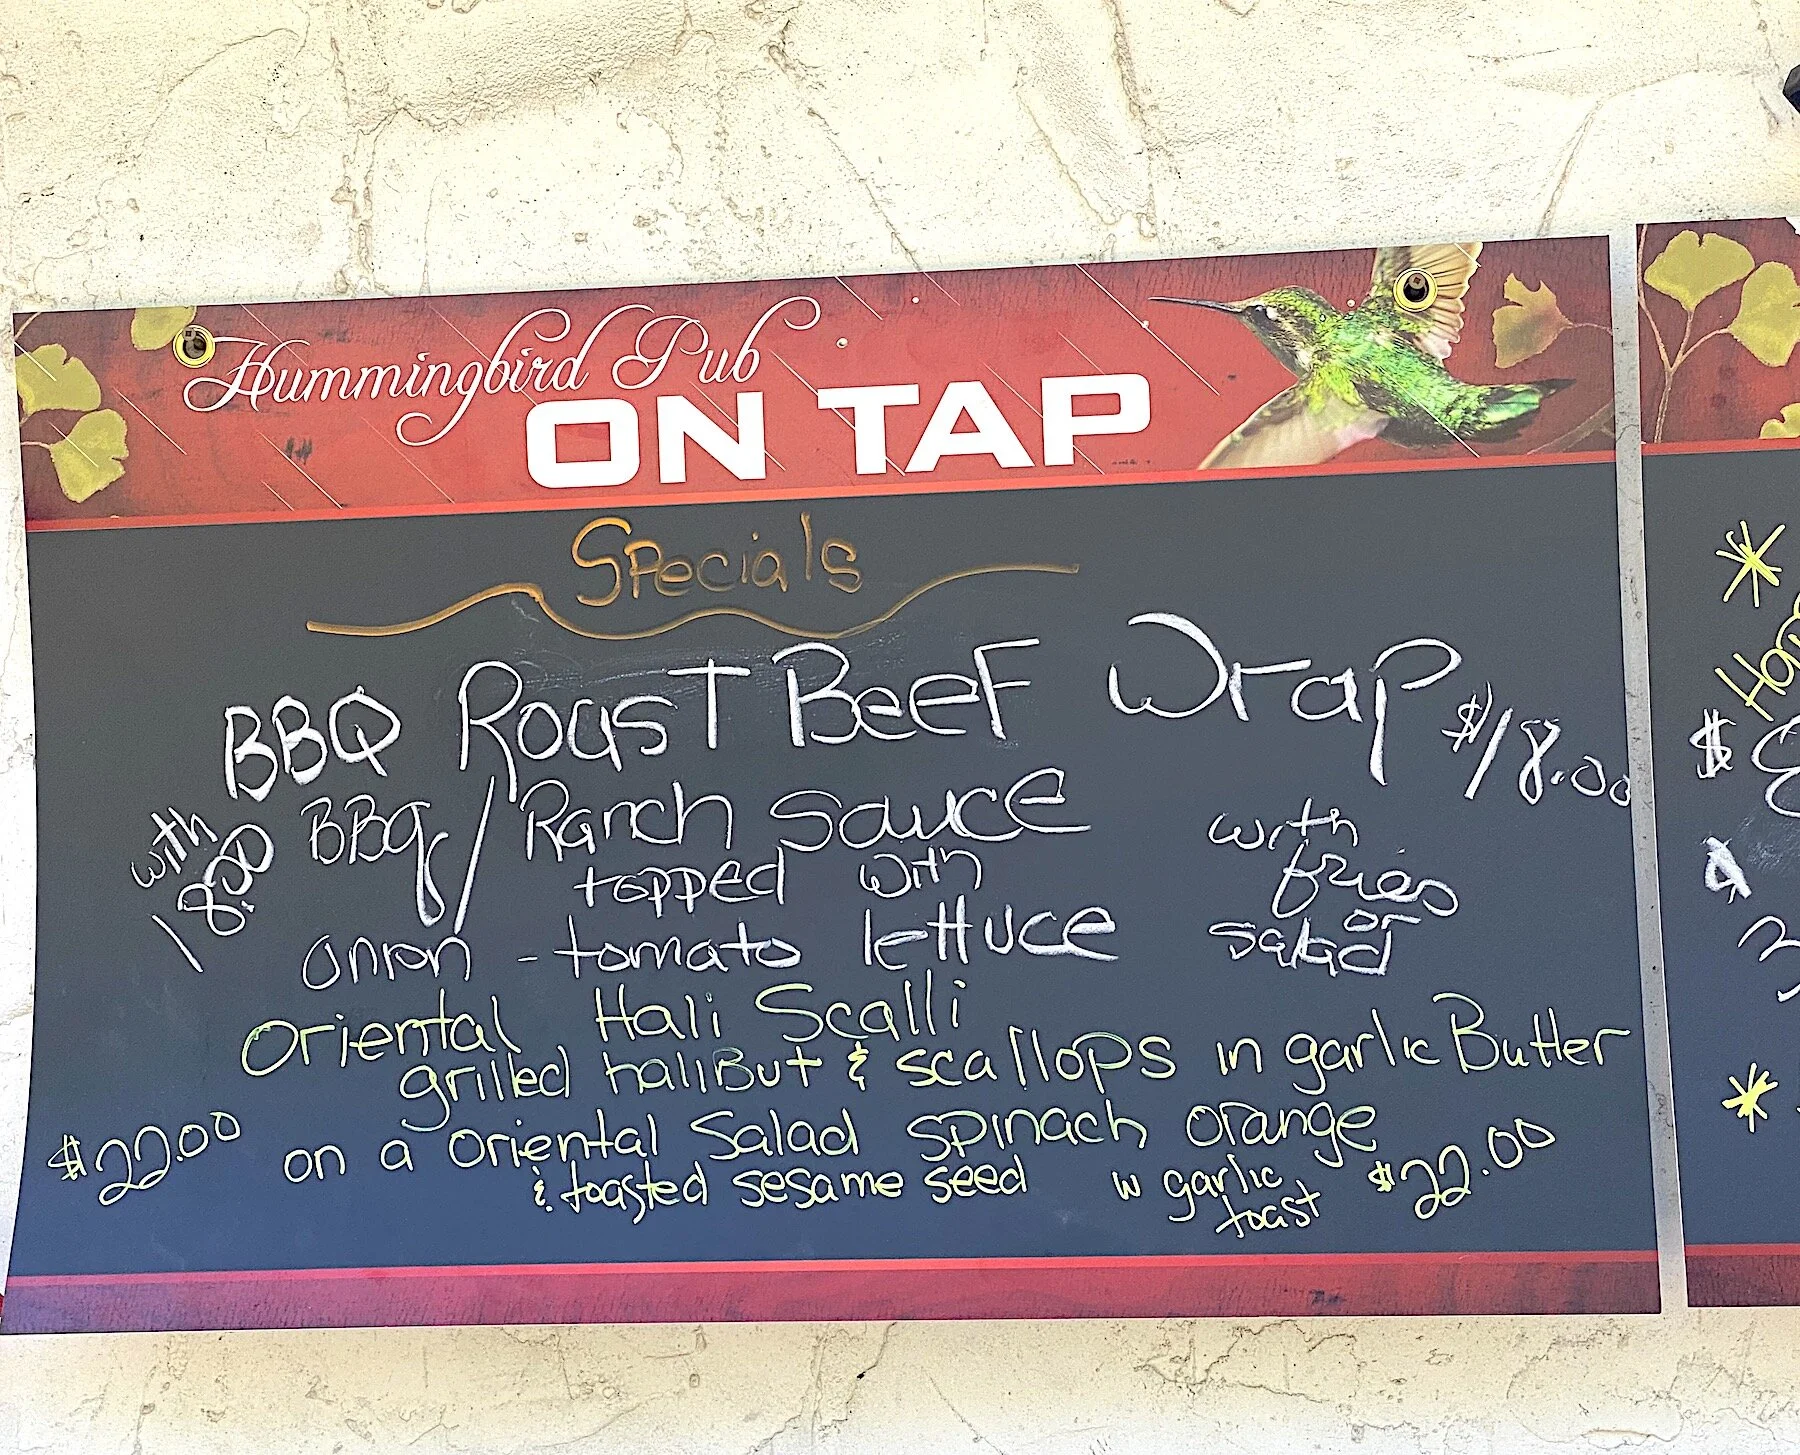 Hummingbird Pub
ON TAP
Specials
BBQ Roast Beef Wrap $18.00
with 18.00
BBq/Ranch Sauce
topped with
onion - tomato lettuce
with
fries
or
salad
Oriental Hali Scalli
grilled haliBut & scallops in garlic Butter
$22.00 on a oriental Salad spinach orange
& toasted sesame seed
w garlic
toast
$22.00
$
3